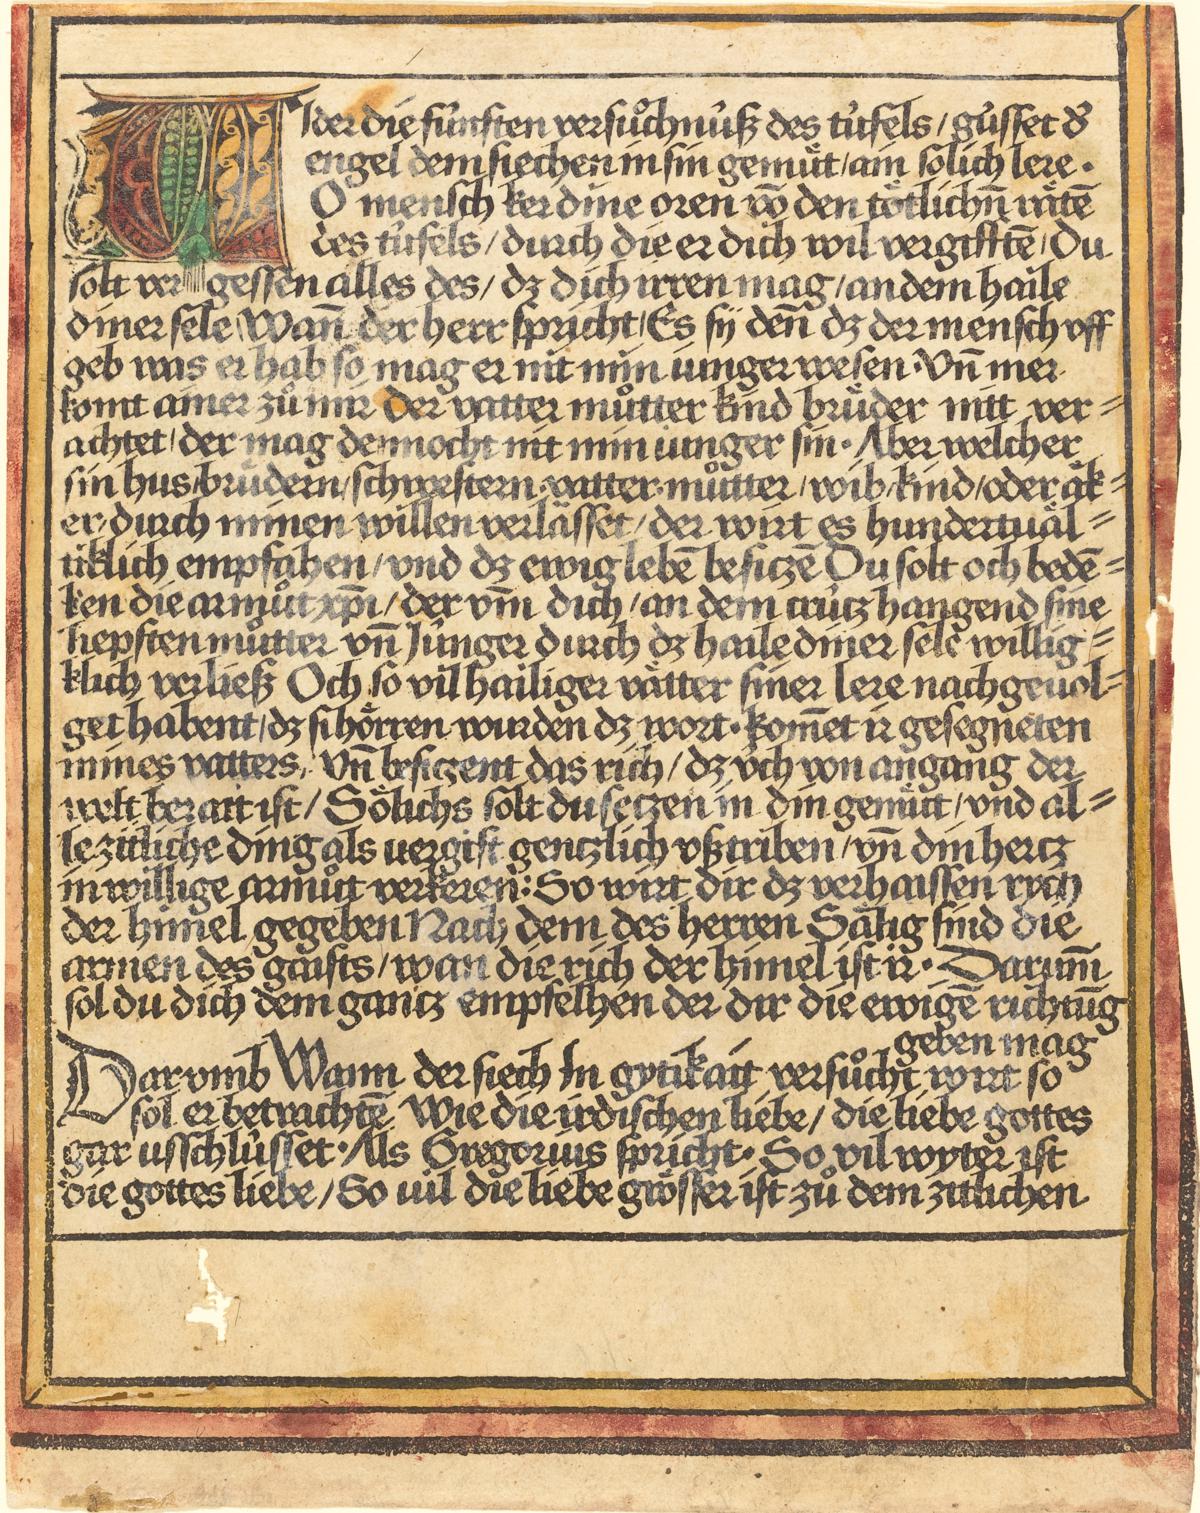 Wider die fünften versůchnüß des tüfels / güsset d'
engel dem siechen in sin gemüt / ain solich lere ·
O mensch ker dine oren vō den tötlichñ rätē
des tüfels / durch die er dich wil vergifftē / Du
solt vergessen alles des / dz dich irren mag / an dem haile
diner sele Wañ der herr spricht / Es sÿ deñ dz der mensch vff
geb was er hab so mag er nit min iunger wesen · Vñ mer
komt ainer zů mir Der vatter můtter kind brüder nitt ver=
achtet / der mag dennocht nit min iunger sin · Aber welcher
sin hus / brüdern / schwestern vatter · můtter / wib / kind / oder äk=
er / durch minen willen verlässet / der wirt es hundertuäl=
tiklich empfahen / vnd dz ewig lebē besiczē Du solt och bedē=
ken die armůt xp̄i / der vm̄ dich / an dem crütz hangend sine
liepsten můtter vñ Jünger durch dz haile diner sele willig=
klich verließ Och so vil hailiger vätter siner lere nachgeuol=
get habent / dz si hörren wurden dz wort · kom̄et ir gesegneten
mines vatters, Vñ besiczent das rich / dz v́ch von angang der
welt berait ist / Sölichs solt du seczen in din gemüt / vnd al=
le zittliche ding als uergift genczlich vßtriben / vñ din hertz
in willige armůt verkeren: So wirt dir dz verhaissen rych
der himel gegeben Nach dem des herren Sälig sind die
armen des gaists / wan die rich der himel ist ir · Darum̄
sol du dich dem gantz empfelhen der dir die ewigē richtūg
geben mag
Dar vmb Wann der siech In gytikait versůcht wirt so
sol er betrachtē Wie die irdischen liebe / die liebe gottes
gar usschlüsset · Als Gregorius spricht · So vil wyter ist
die gottes liebe / So uil die liebe grösser ist zů dem zitlichen